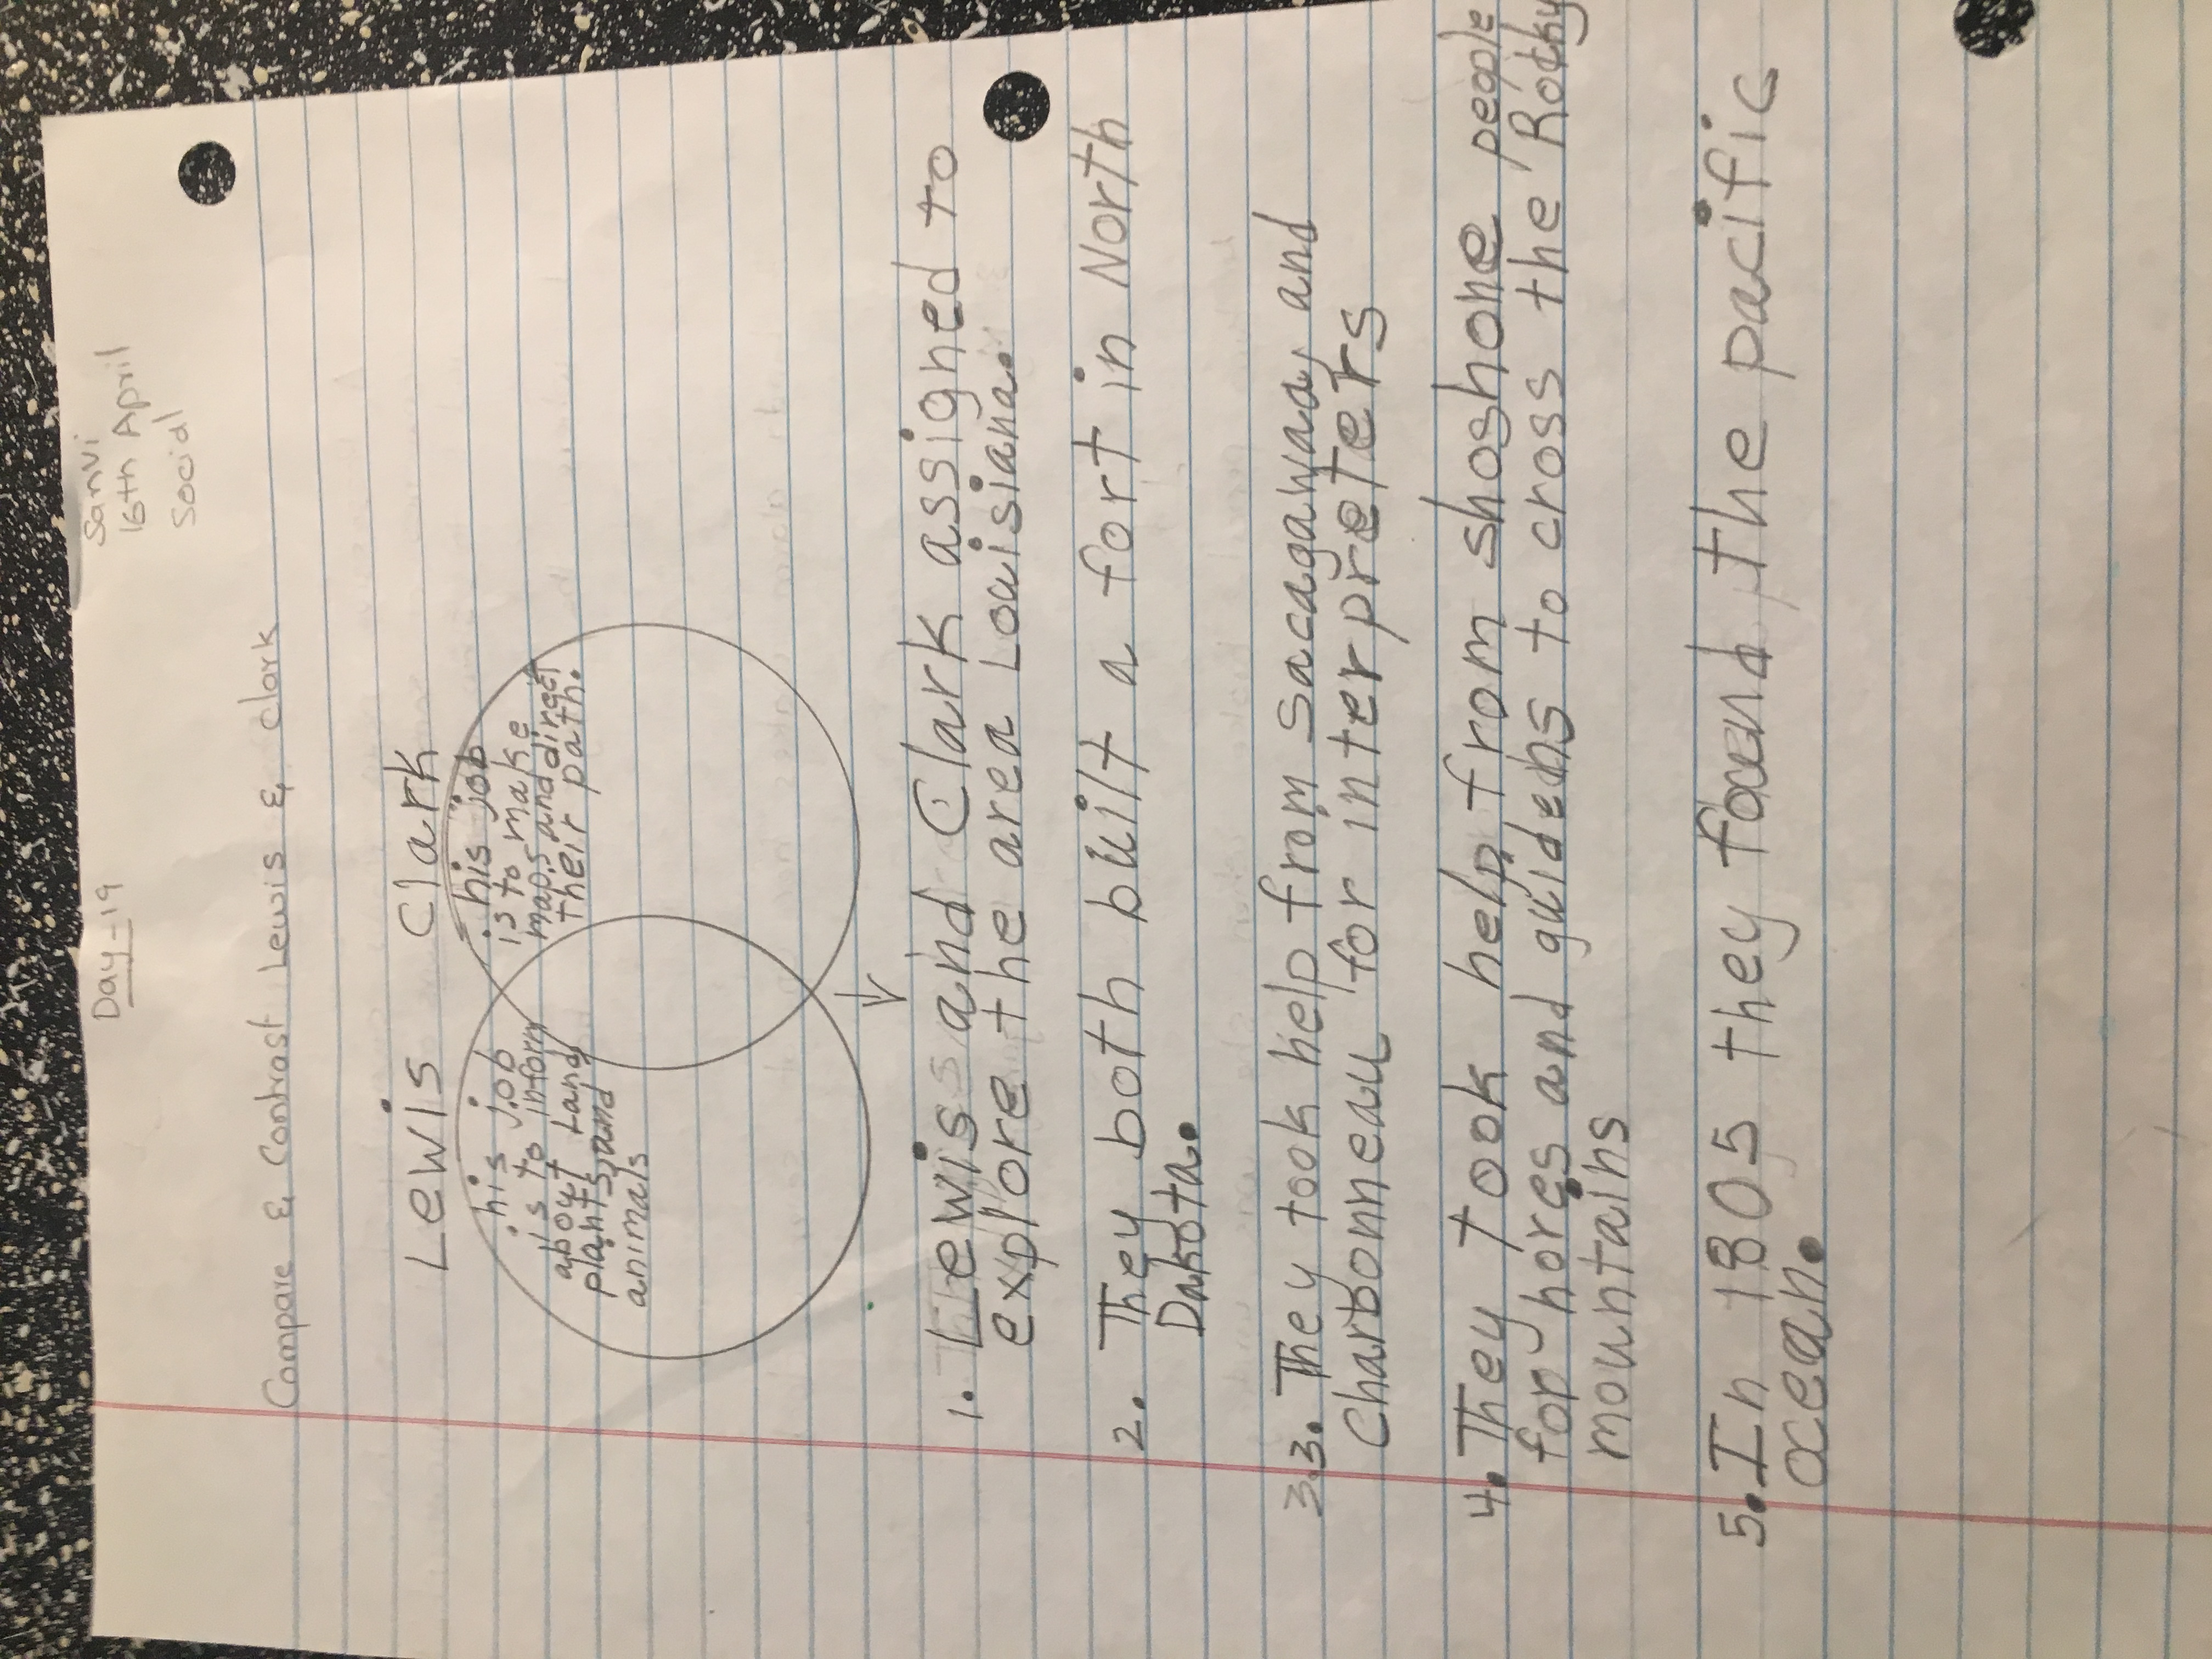 Day-19
Sanvi
16th April
Social
Compare & Contrast Lewis & Clark
Lewis
Clark
. his job
is to inform
about Land
plants, and
animals
. his job
is to make
maps and direct
their path.
1. Lewis and Clark assigned to
explore the area Louisiana.
2. They both built a fort in North
Dakota.
3.3. They took help from Sacagawaa, and
Charbonneau for interpreters
4. They took help from shoshone people
for hores and guidens to cross the Rocky
mountains
5. In 1805 they found the pacific
ocean.